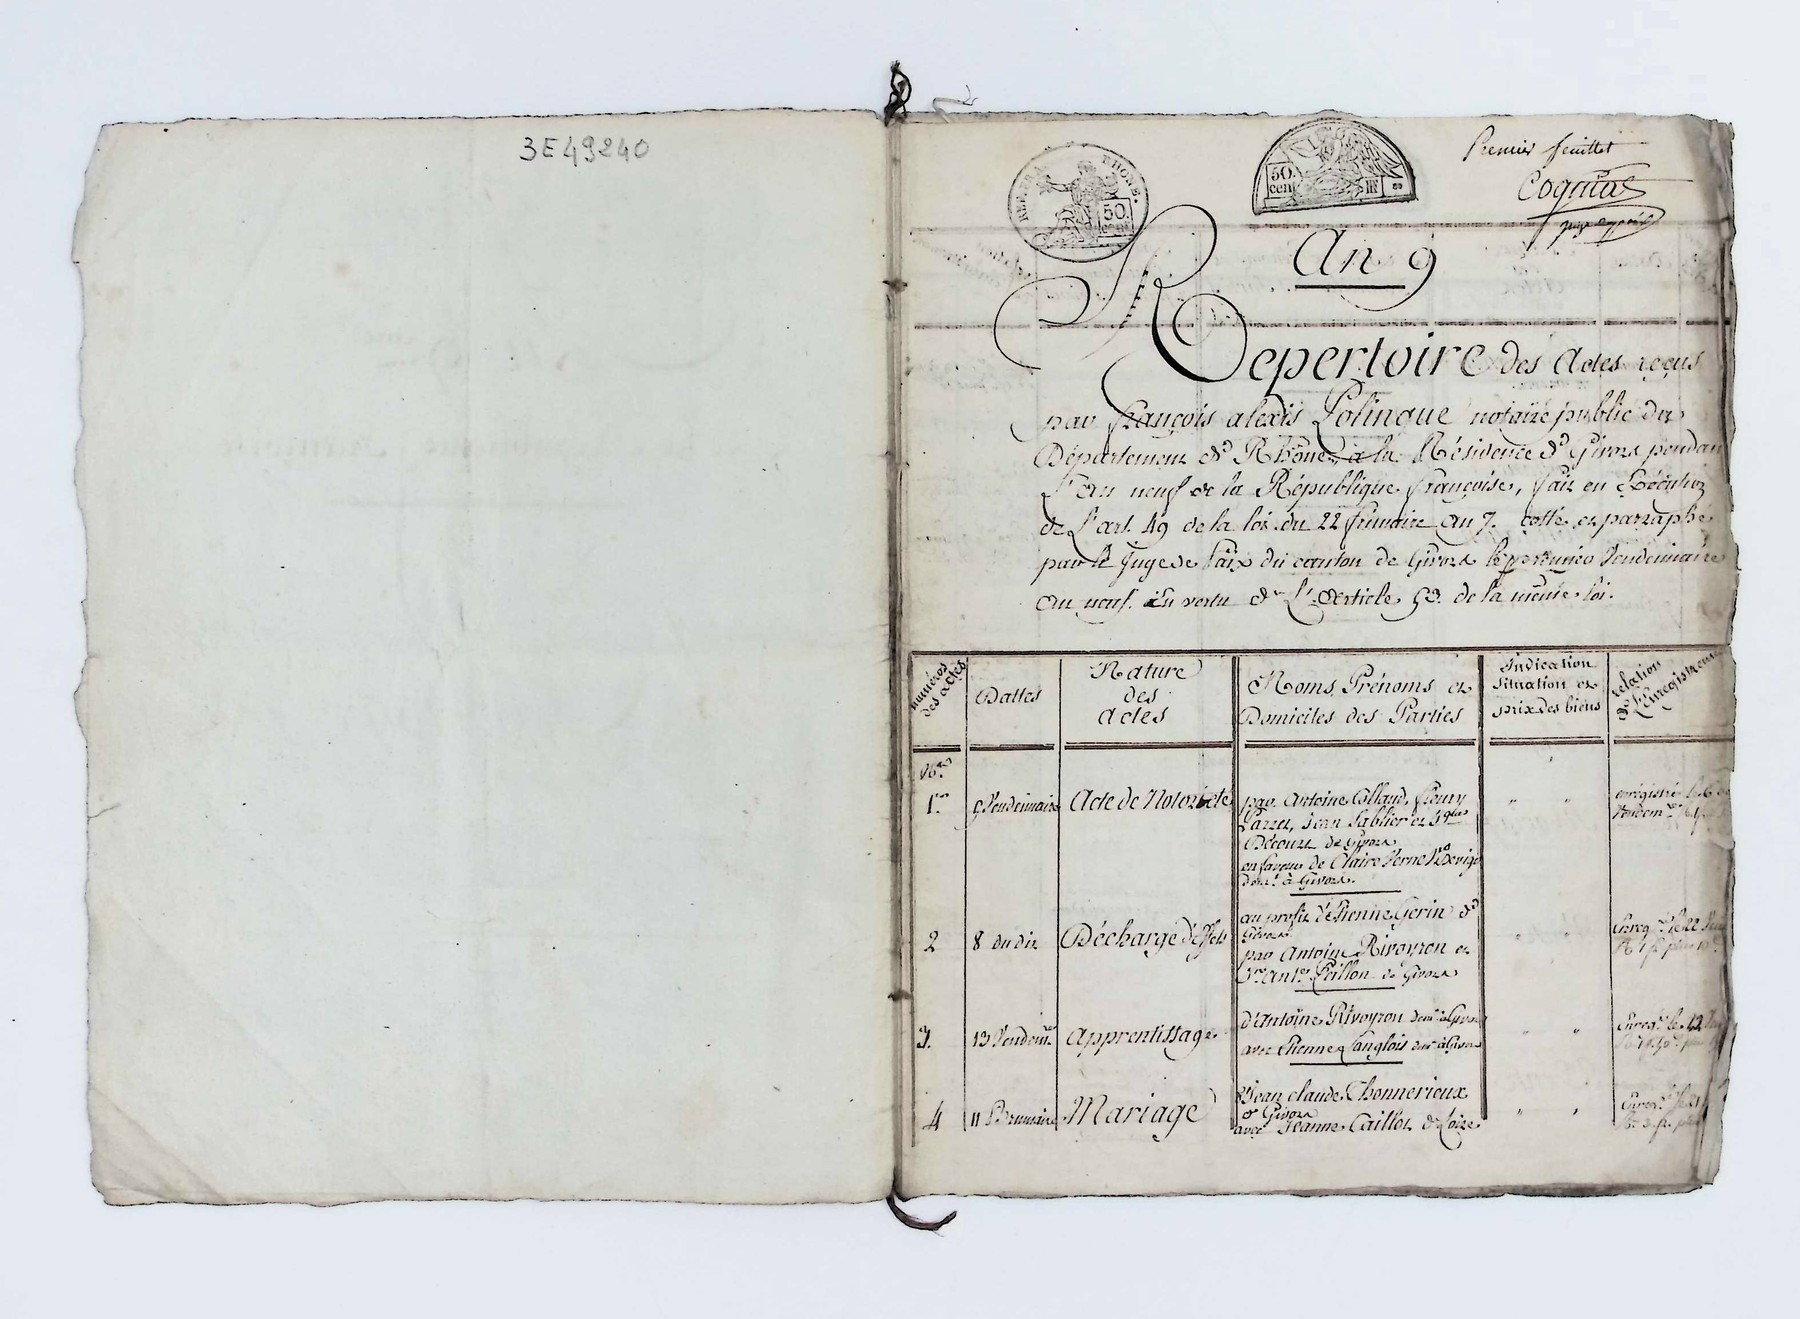 3E49240
REP. FRA. RHONE.
50. cent
50. cen
Premier feuillet
Cognas
An 9
Repertoire des Actes reçus
par françois alexis Polingue notaire public du
Département d. Rhône, à la Résidence d. Givors pendan
l'an neuf de la République françoise, fait en Exécution
de l'art. 49 de la loi du 22 frimaire an 7. cotté et parraphé
par le Juge de Paix du canton de Givors le premier Vendemiaire
an neuf. En vertu de l'article 53. de la même loi.
numéros des actes
Dattes
Nature
des
actes
Noms, Prénoms et
Domiciles des Parties
Indication
Situation et
prix des biens
relation
de l'Enregistrem
Nos
1er
Vendemiaire
Acte de Notoriété
par Antoine Collaud, fleury
Jean Sablier et
de Givors
en faveur de Claire
à Givors.
enregistré le 6
Vendem.re
2
8 du dit
Décharge d'effets
au profit d'Etienne Gerin d.
Givors
par Antoine Rivoyron et
ant.e Peillon de Givors
Enreg.é le 22
3.
13 Vendem.re
Apprentissage
d'Antoine Rivoyron dem.t à Givors
avec Etienne Langlois dem.t à Givors
Enreg.é le
4
11 Brumaire
Mariage
Jean claude Thonnerieux
d. Givors
avec Jeanne Caillot d. Loire
Enreg.é le 21